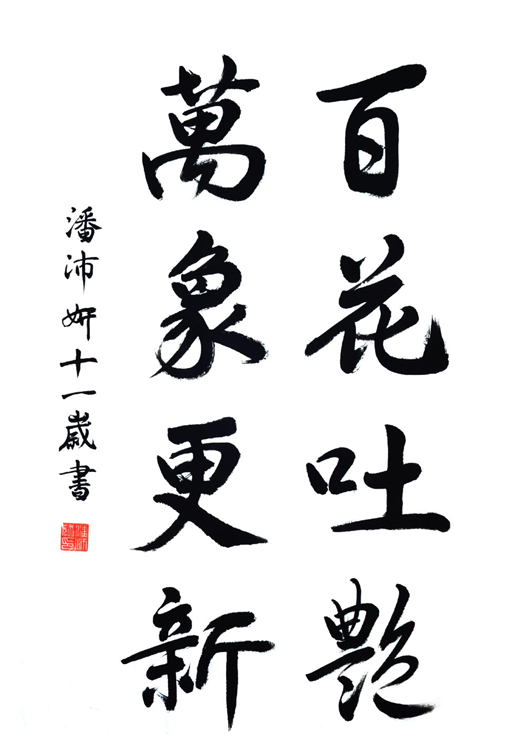 百花吐艷
萬象更新
潘沛妍十一歲書